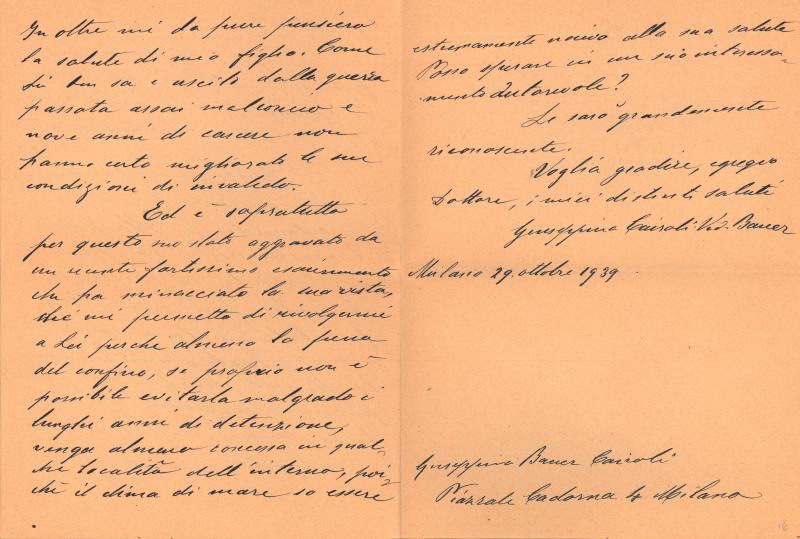 In oltre mi da pure pensiero
la salute di mio figlio. Come
Lei ben sa è uscito dalla guerra
passata assai malconcio e
nove anni di carcere non
hanno certo migliorato le sue
condizioni di invalido.
Ed è sopratutto
per questo suo stato aggravato da
un recente fortissimo esaurimento
che ha minacciato la sua vista,
che mi permetto di rivolgermi
a Lei perchè almeno la pena
del confino, se proprio non è
possibile evitarla malgrado i
lunghi anni di detenzione,
venga almeno concessa in qual-
che località dell'interno, poi-
chè il clima di mare so essere
estremamente nocivo alla sua salute
Posso sperare in un suo interessa-
mento autorevole?
Le sarò grandemente
riconoscente.
Voglia gradire, egregio
Dottore, i miei distinti saluti
Giuseppina Cairoli Ved. Bauer
Milano 29. ottobre 1939.
Giuseppina Bauer Cairoli
Piazzale Cadorna 4 Milano
16